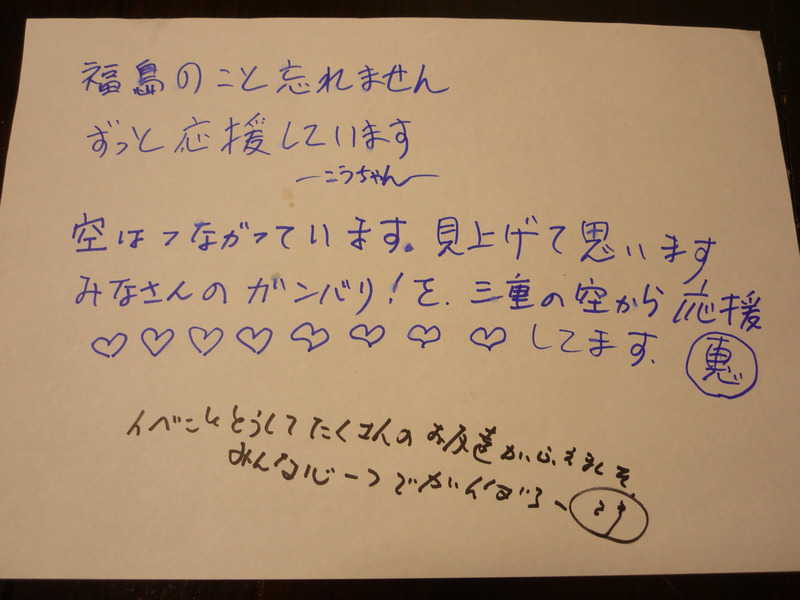 福島のこと忘れません
ずっと応援しています
ーこうちゃんー
空はつながっています。見上げて思います
みなさんのガンバリ!を、三重の空から応援
♡♡♡♡♡♡♡♡してます。恵
イベントとうしてたくさんのお友達がふえました。
みんな心一つでがんばろー